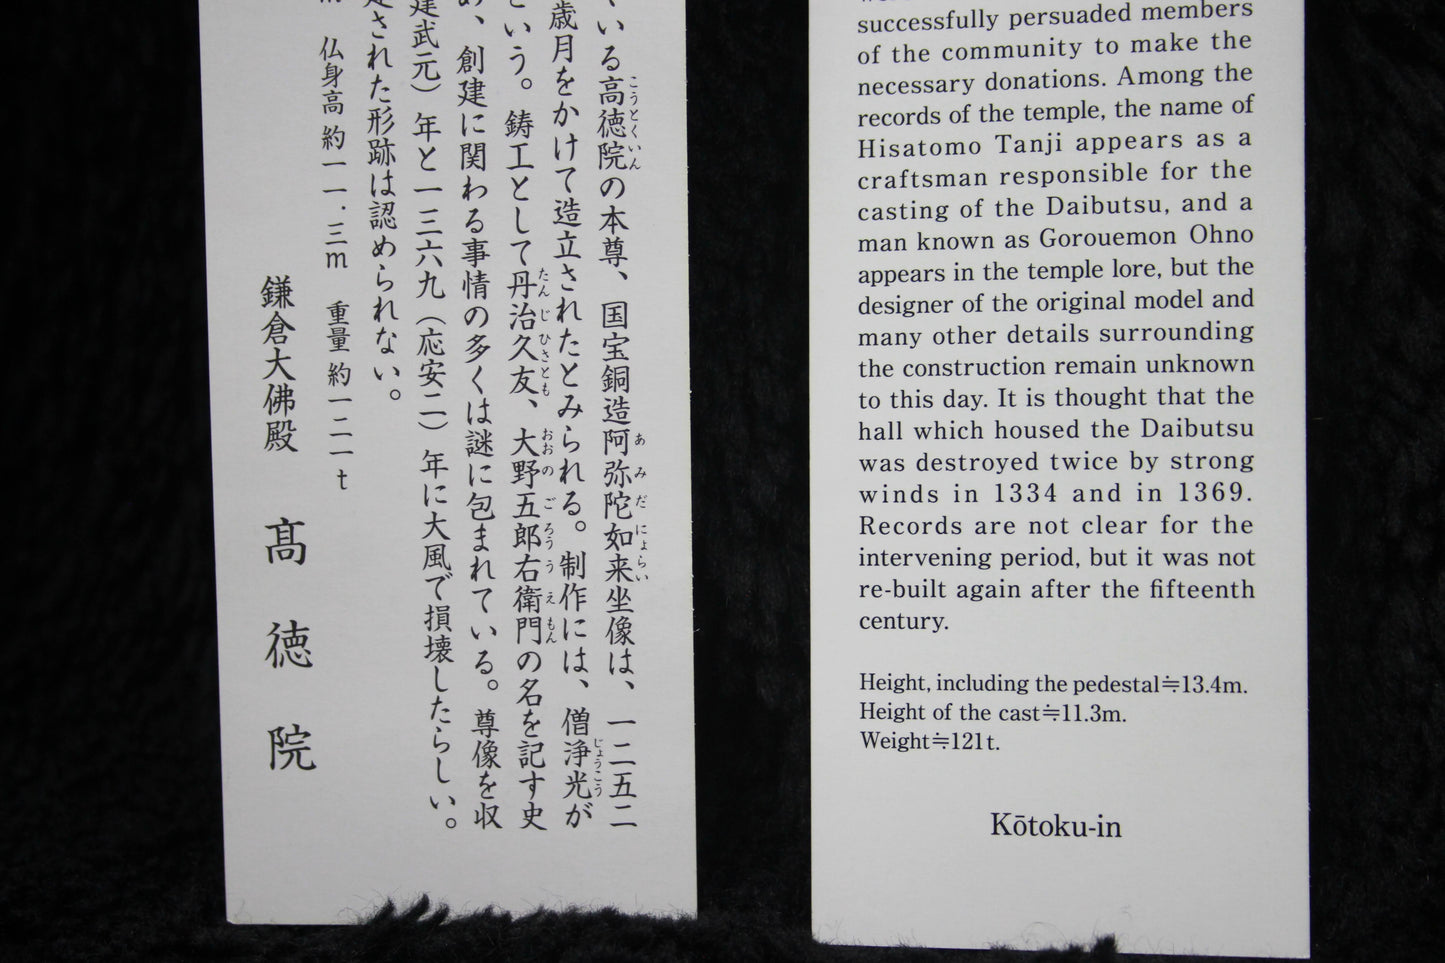 ている高徳院の本尊、国宝銅造阿弥陀如来坐像は、一二五二
歳月をかけて造立されたとみられる。制作には、僧浄光が
という。鋳工として丹治久友、大野五郎右衛門の名を記す史
め、創建に関わる事情の多くは謎に包まれている。尊像を収
建武元）年と一三六九（応安二）年に大風で損壊したらしい。
された形跡は認められない。
m 仏身高 約一一・三m 重量 約一二一t
鎌倉大佛殿 高徳院
successfully persuaded members
of the community to make the
necessary donations. Among the
records of the temple, the name of
Hisatomo Tanji appears as a
craftsman responsible for the
casting of the Daibutsu, and a
man known as Gorouemon Ohno
appears in the temple lore, but the
designer of the original model and
many other details surrounding
the construction remain unknown
to this day. It is thought that the
hall which housed the Daibutsu
was destroyed twice by strong
winds in 1334 and in 1369.
Records are not clear for the
intervening period, but it was not
re-built again after the fifteenth
century.
Height, including the pedestal≒13.4m.
Height of the cast≒11.3m.
Weight≒121t.
Kōtoku-in